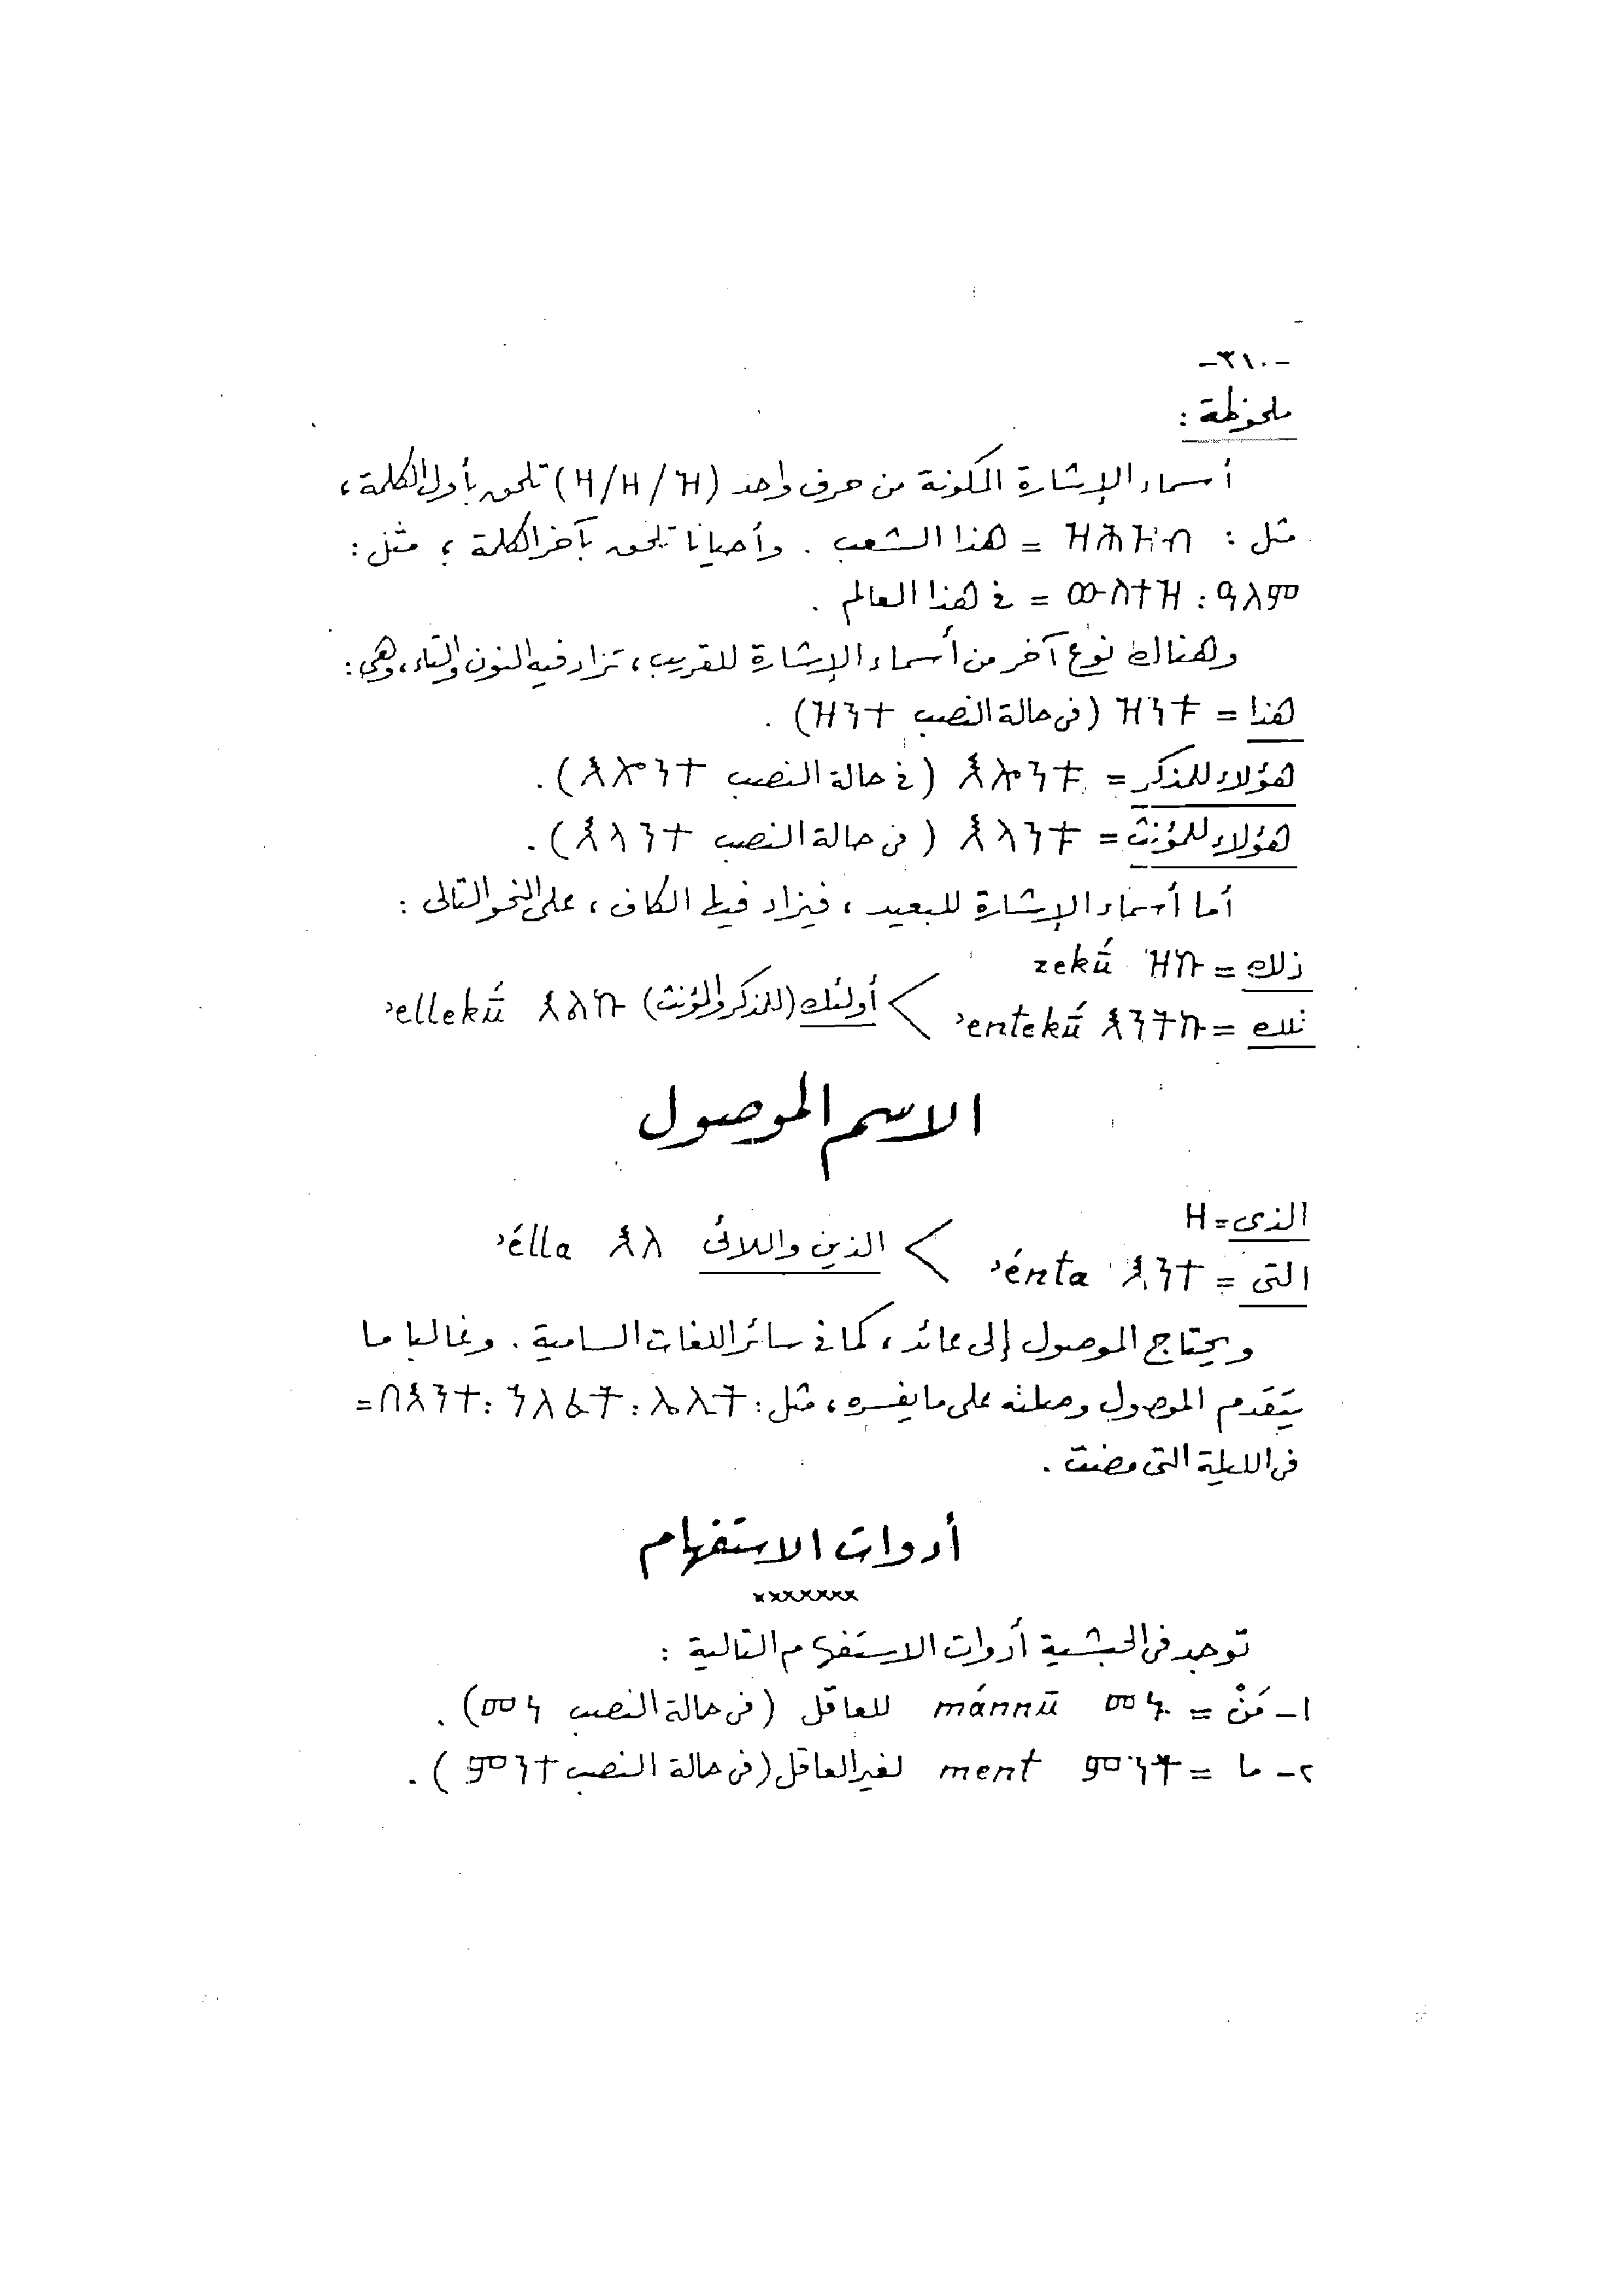 -٣١٠-
ملحوظة :
أسماء الإشارة المكونة من حرف واحد (ዝ/ዛ/ዘ) تلحق بأول الكلمة،
مثل : ዝሕዝብ = هذا الشعب . وأحيانا تلحق بآخر الكلمة ؛ مثل :
ውስተዝ : ዓለም = فى هذا العالم .
وهناك نوع آخر من أسماء الإشارة للقريب، تزاد فيه النون والتاء، وهى :
هذا = ዝንቱ (فى حالة النصب ዘንተ) .
هؤلاء للمذكر = እሎንቱ (فى حالة النصب እሎንተ) .
هؤلاء للمؤنث = እላንቱ (فى حالة النصب እላንተ) .
أما أسماء الإشارة للبعيد ، فيزاد فيها الكاف ، على النحو التالى :
ذلك = ዝኩ zekū́
تلك = እንትኩ ʾentekū́ > أولئك (للمذكر والمؤنث) እልኩ ʾellekū́
الاسم الموصول
الذى = ዘ
التى = እንተ ʾénta > الذين واللائى እለ ʾélla
ويحتاج الموصول إلى عائد، كما فى سائر اللغات السامية . وغالبا ما
يتقدم الموصول وصلته على ما يفسره ، مثل : በእንተ : ኀለፈት : ሌሊት =
فى الليلة التى مضت .
أدوات الاستفهام
×××××××
توجد فى الحبشية أدوات الاستفهام التالية :
١- مَنْ = መኑ mánnū للعاقل (فى حالة النصب መነ) .
٢- ما = ምንት ment لغير العاقل (فى حالة النصب ምንተ) .